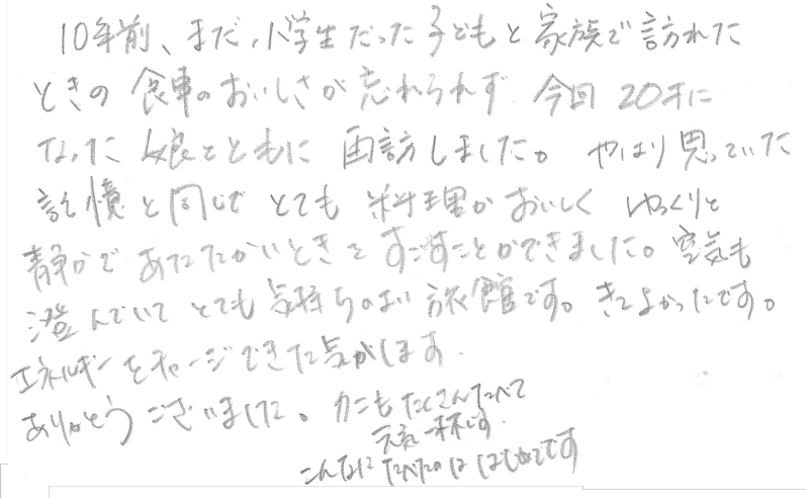 10年前、まだ小学生だった子どもと家族で訪れた
ときの食事のおいしさが忘れられず 今回20才に
なった娘とともに再訪しました。やはり思っていた
記憶と同じで とても 料理がおいしく ゆっくりと
静かで あたたかいときをすごすことができました。空気も
澄んでいて とても気持ちのよい旅館です。きてよかったです。
エネルギーをチャージできた気がします.
ありがとうございました。カニもたくさんたべて
元気一杯です.
こんなにたべたのははじめてです